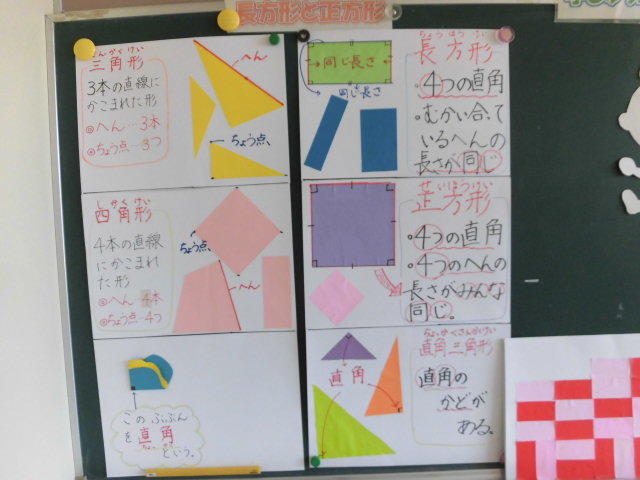 長方形と正方形
さんかくけい
三角形
3本の直線に
かこまれた形
◎へん…3本
◎ちょう点…3つ
へん
ちょう点
しかくけい
四角形
4本の直線
にかこまれ
た形
◎へん…4本
◎ちょう点…4つ
ちょう点
へん
この ぶぶん
を 直角
という。
同じ長さ
同じ長さ
ちょうほうけい
長方形
・4つの直角
・むかい合って
いるへんの
長さが同じ
せいほうけい
正方形
・4つの直角
・4つのへんの
長さがみんな
同じ。
直角
ちょっかくさんかくけい
直角三角形
直角の
かどが
ある。